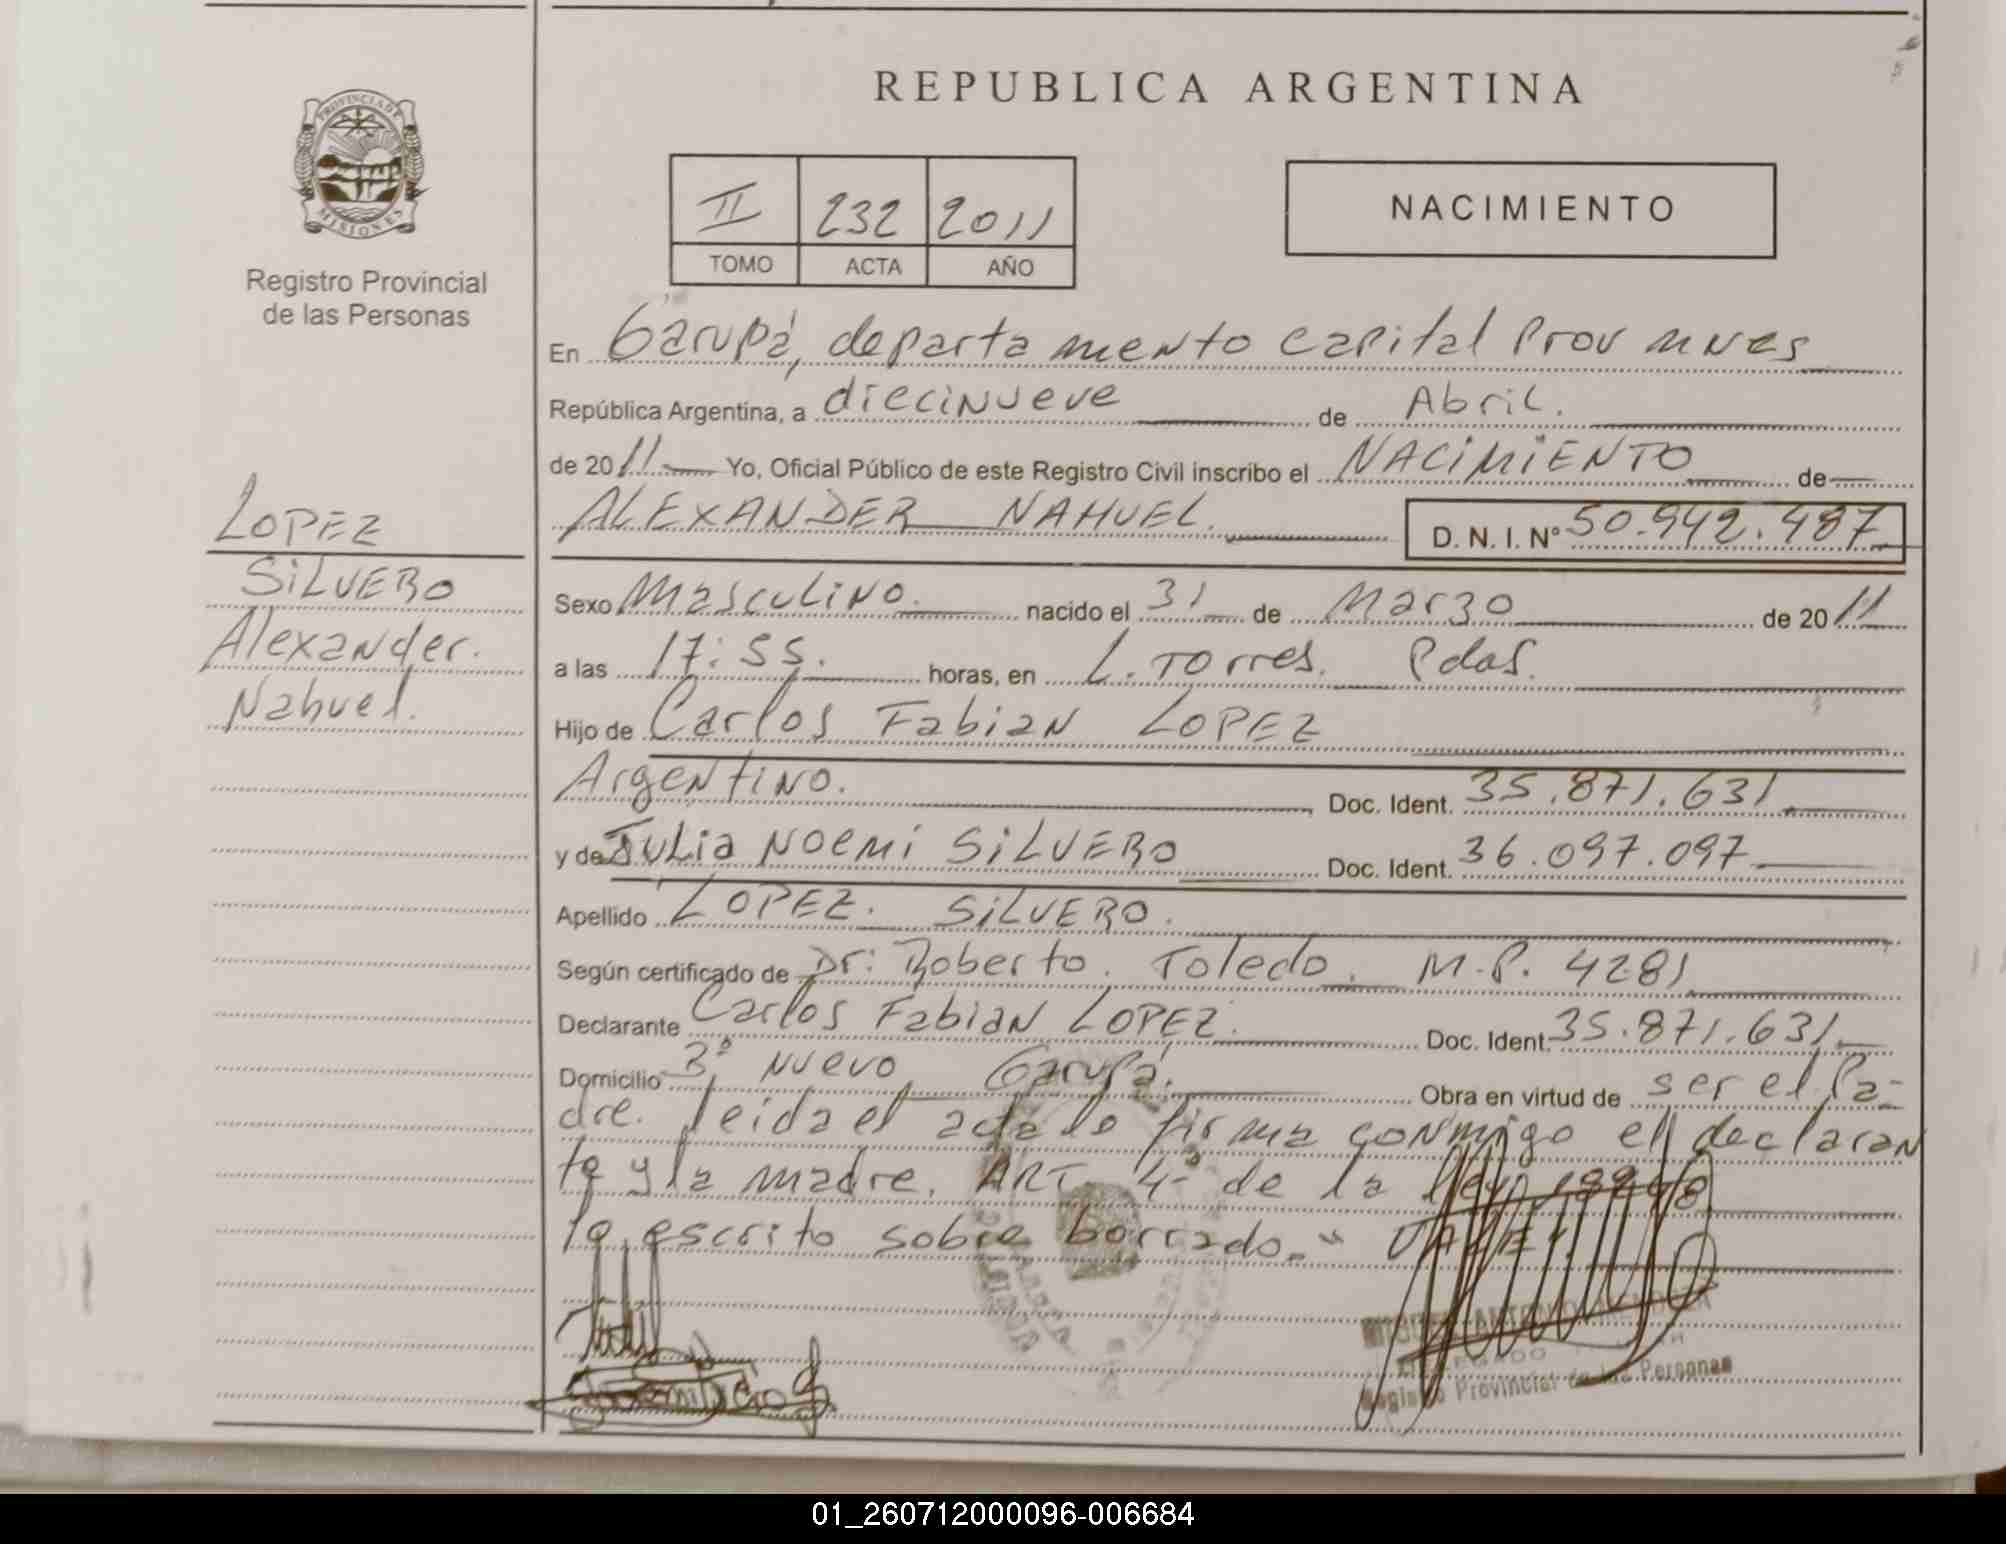 REPUBLICA ARGENTINA
PROVINCIA DE
MISIONES
Registro Provincial
de las Personas
II 232 2011
TOMO ACTA AÑO
NACIMIENTO
En Garupá, departamento capital Prov Mnes
República Argentina, a diecinueve de Abril.
de 2011 Yo, Oficial Público de este Registro Civil inscribo el NACIMIENTO de
ALEXANDER NAHUEL. D. N. I. Nº 50.942.487
LOPEZ
SILVERO
Alexander.
Nahuel.
Sexo Masculino. nacido el 31 de Marzo de 2011
a las 17:55. horas, en L. Torres. Pdas.
Hijo de Carlos Fabian LOPEZ
Argentino. Doc. Ident. 35.871.631
y de Julia Noemi SILVERO Doc. Ident. 36.097.097
Apellido LOPEZ. SILVERO.
Según certificado de Dr: Roberto. Toledo. M.P. 4281
Declarante Carlos Fabian LOPEZ. Doc. Ident. 35.871.631
Domicilio Bº Nuevo Garupá. Obra en virtud de ser el Pa-
dre. leida el acta la firma conmigo el declaran
te y la madre. ART 4º de la ley
lo escrito sobre borrado." VALE".
Registro Provincial de las Personas
01_260712000096-006684